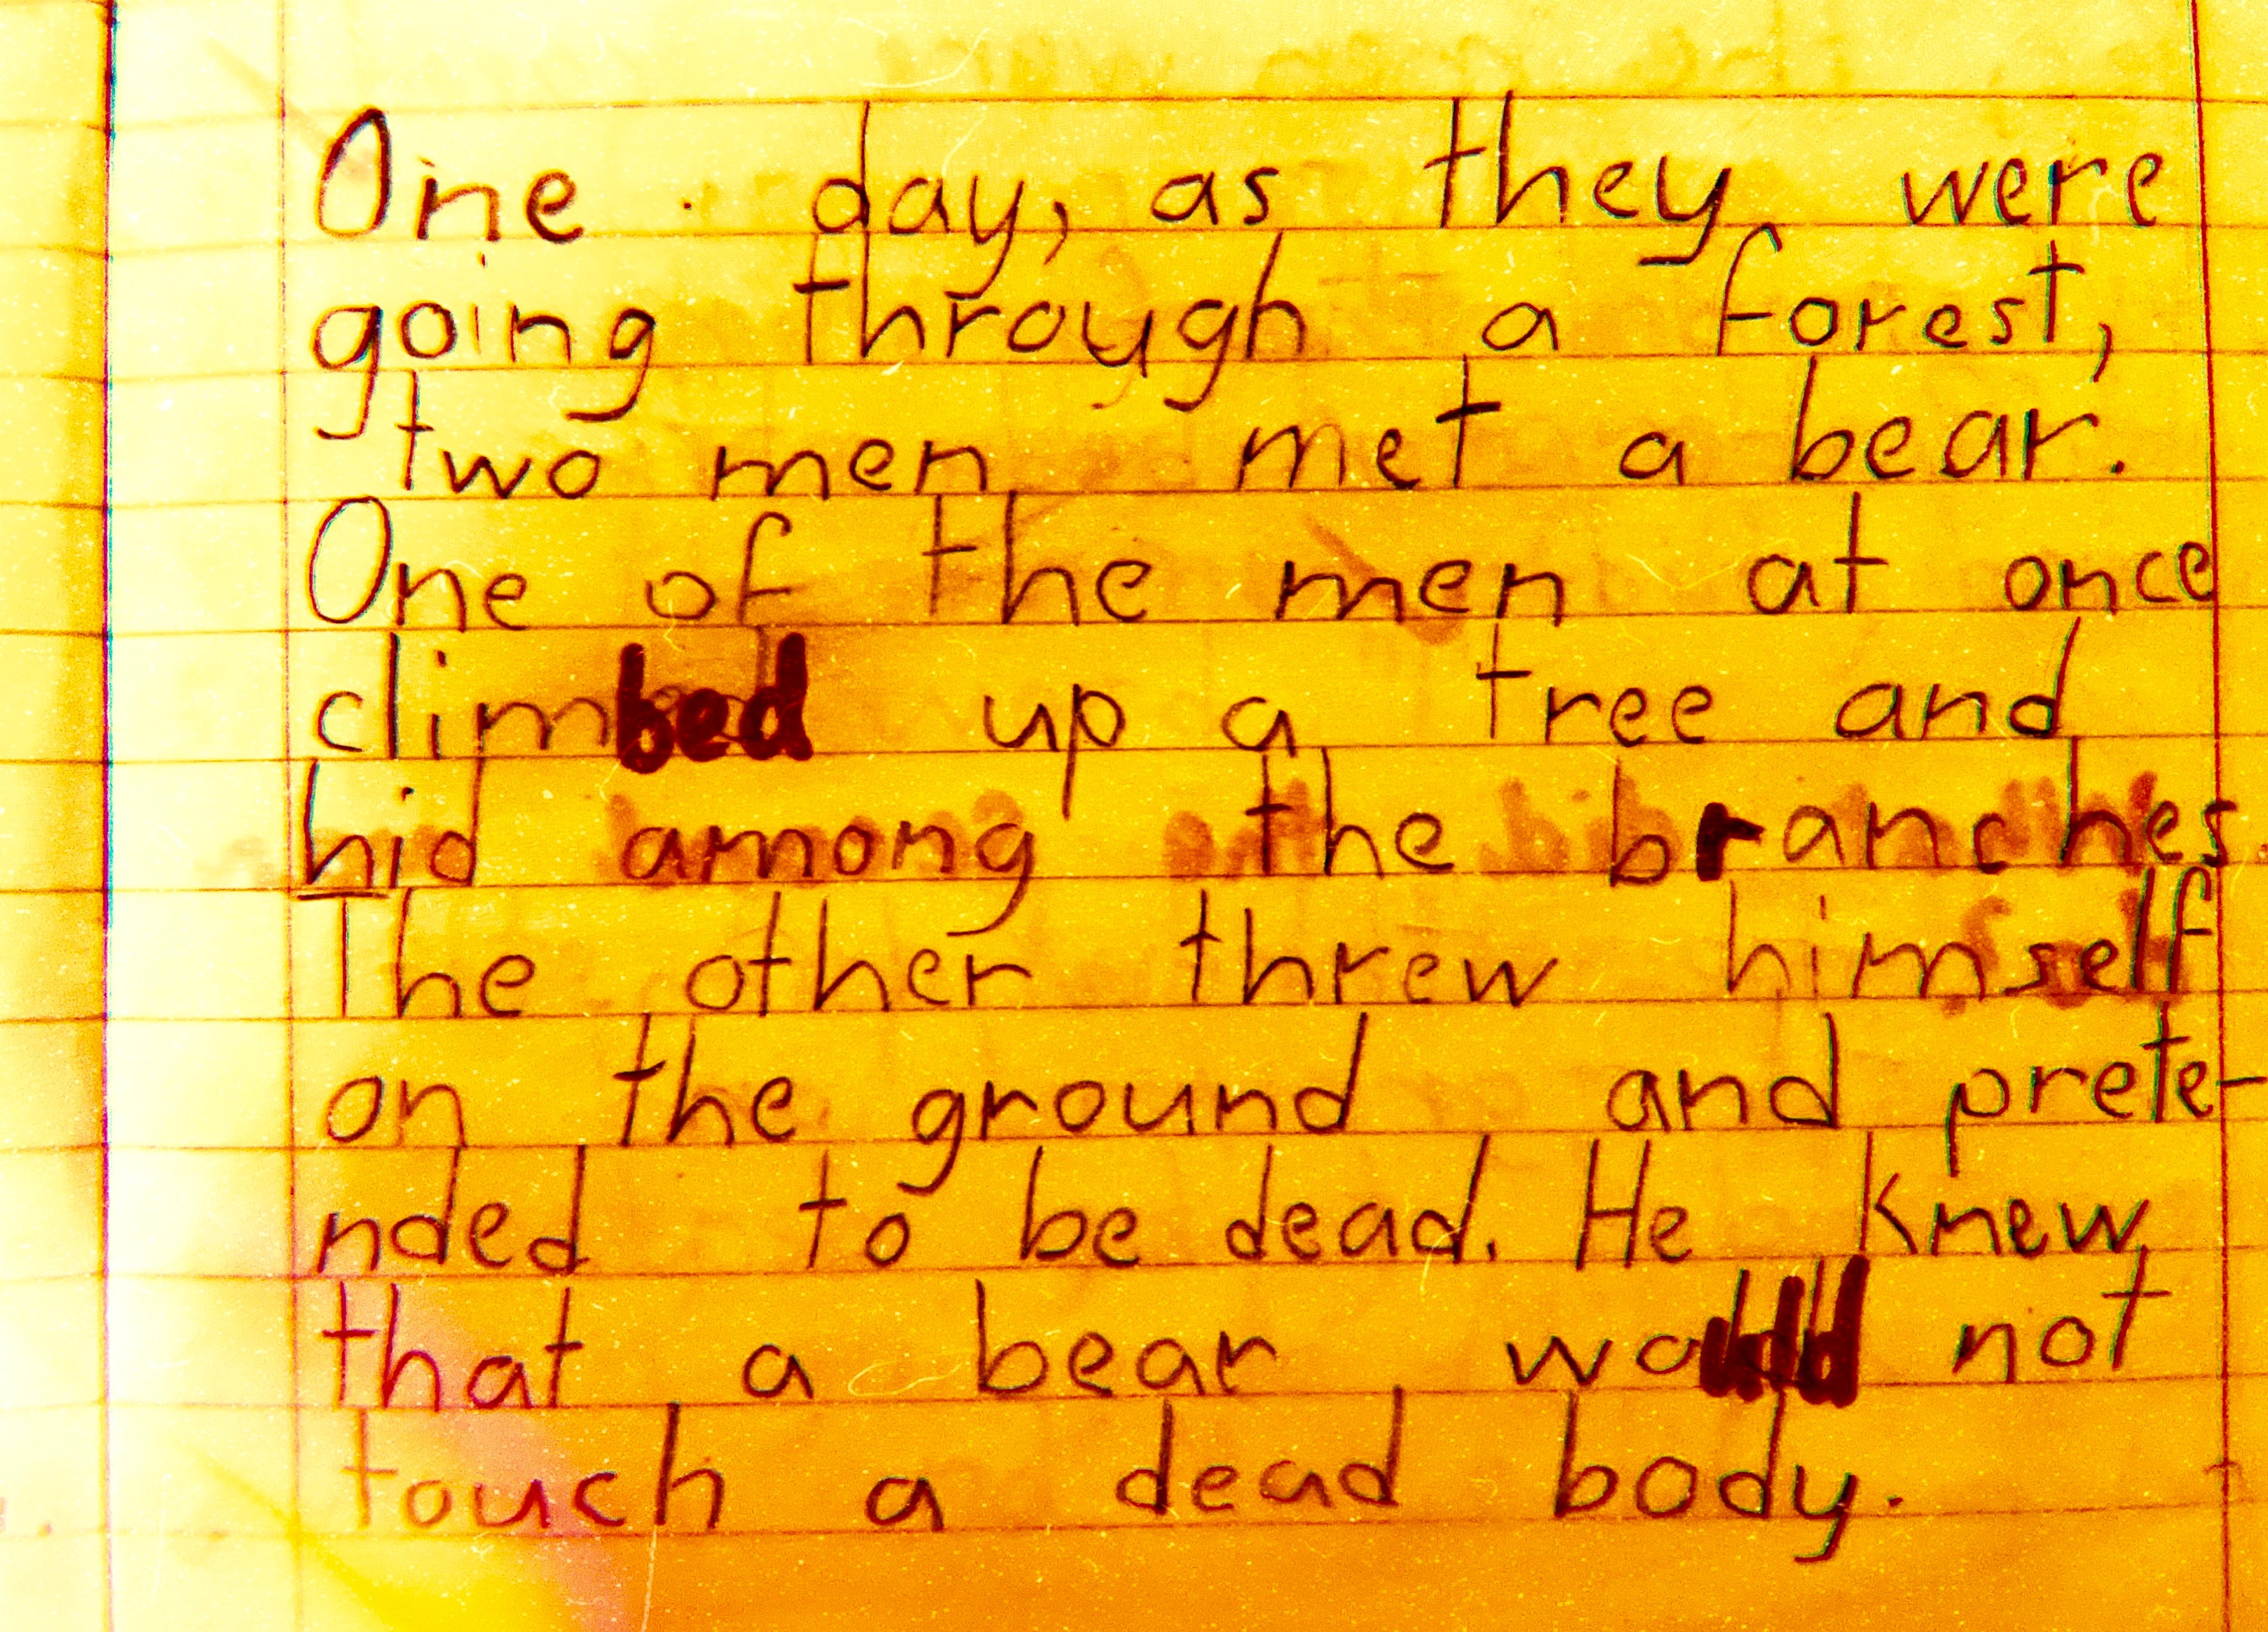 One day, as they were
going through a forest,
two men met a bear.
One of the men at once
climbed up a tree and
hid among the branches.
The other threw himself
on the ground and prete-
nded to be dead. He knew
that a bear would not
touch a dead body.